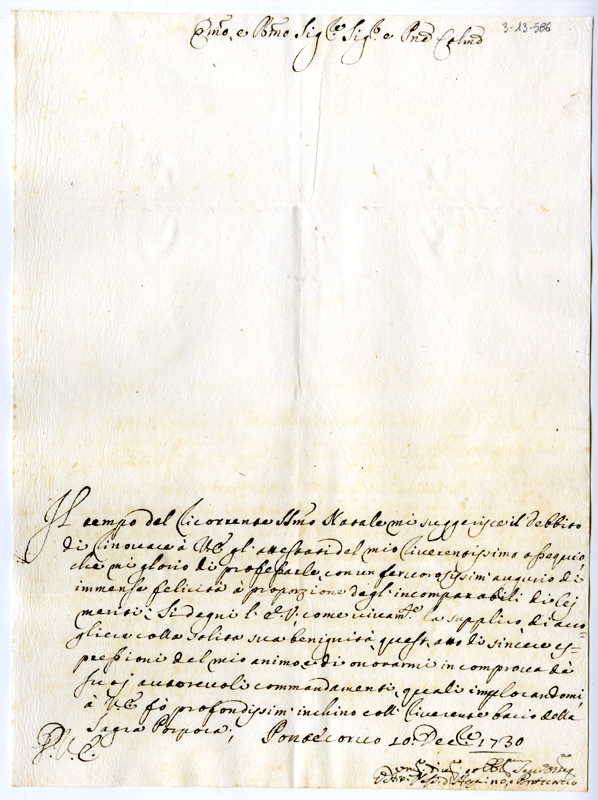 Emo, e Rmo Sigre Sigre e Pne Colmo
3-13-586
Il tempo del ricorrente SSmo Natale mi suggerisce il debbito
di rinovare à V.E. gli attestati del mio riverentissimo ossequio,
che mi glorio di professarle, con un fervorosissim' augurio di
immense felicità à proporzione degl' incomparabili di lej
meriti; Si degni l' E.V. come vivamte la supplico di acco=
gliere colla solita sua benignità quest' atto di sincère es=
pressioni del mio animo e di onorarmi in comprova dè
suoj autorevoli commandamenti, quali implorandomi,
à V.E. fò profondissim' inchino coll' riverente bacio della
Sagra Porpora;
Pontecorvo 10. Decre 1730
D. V. E.